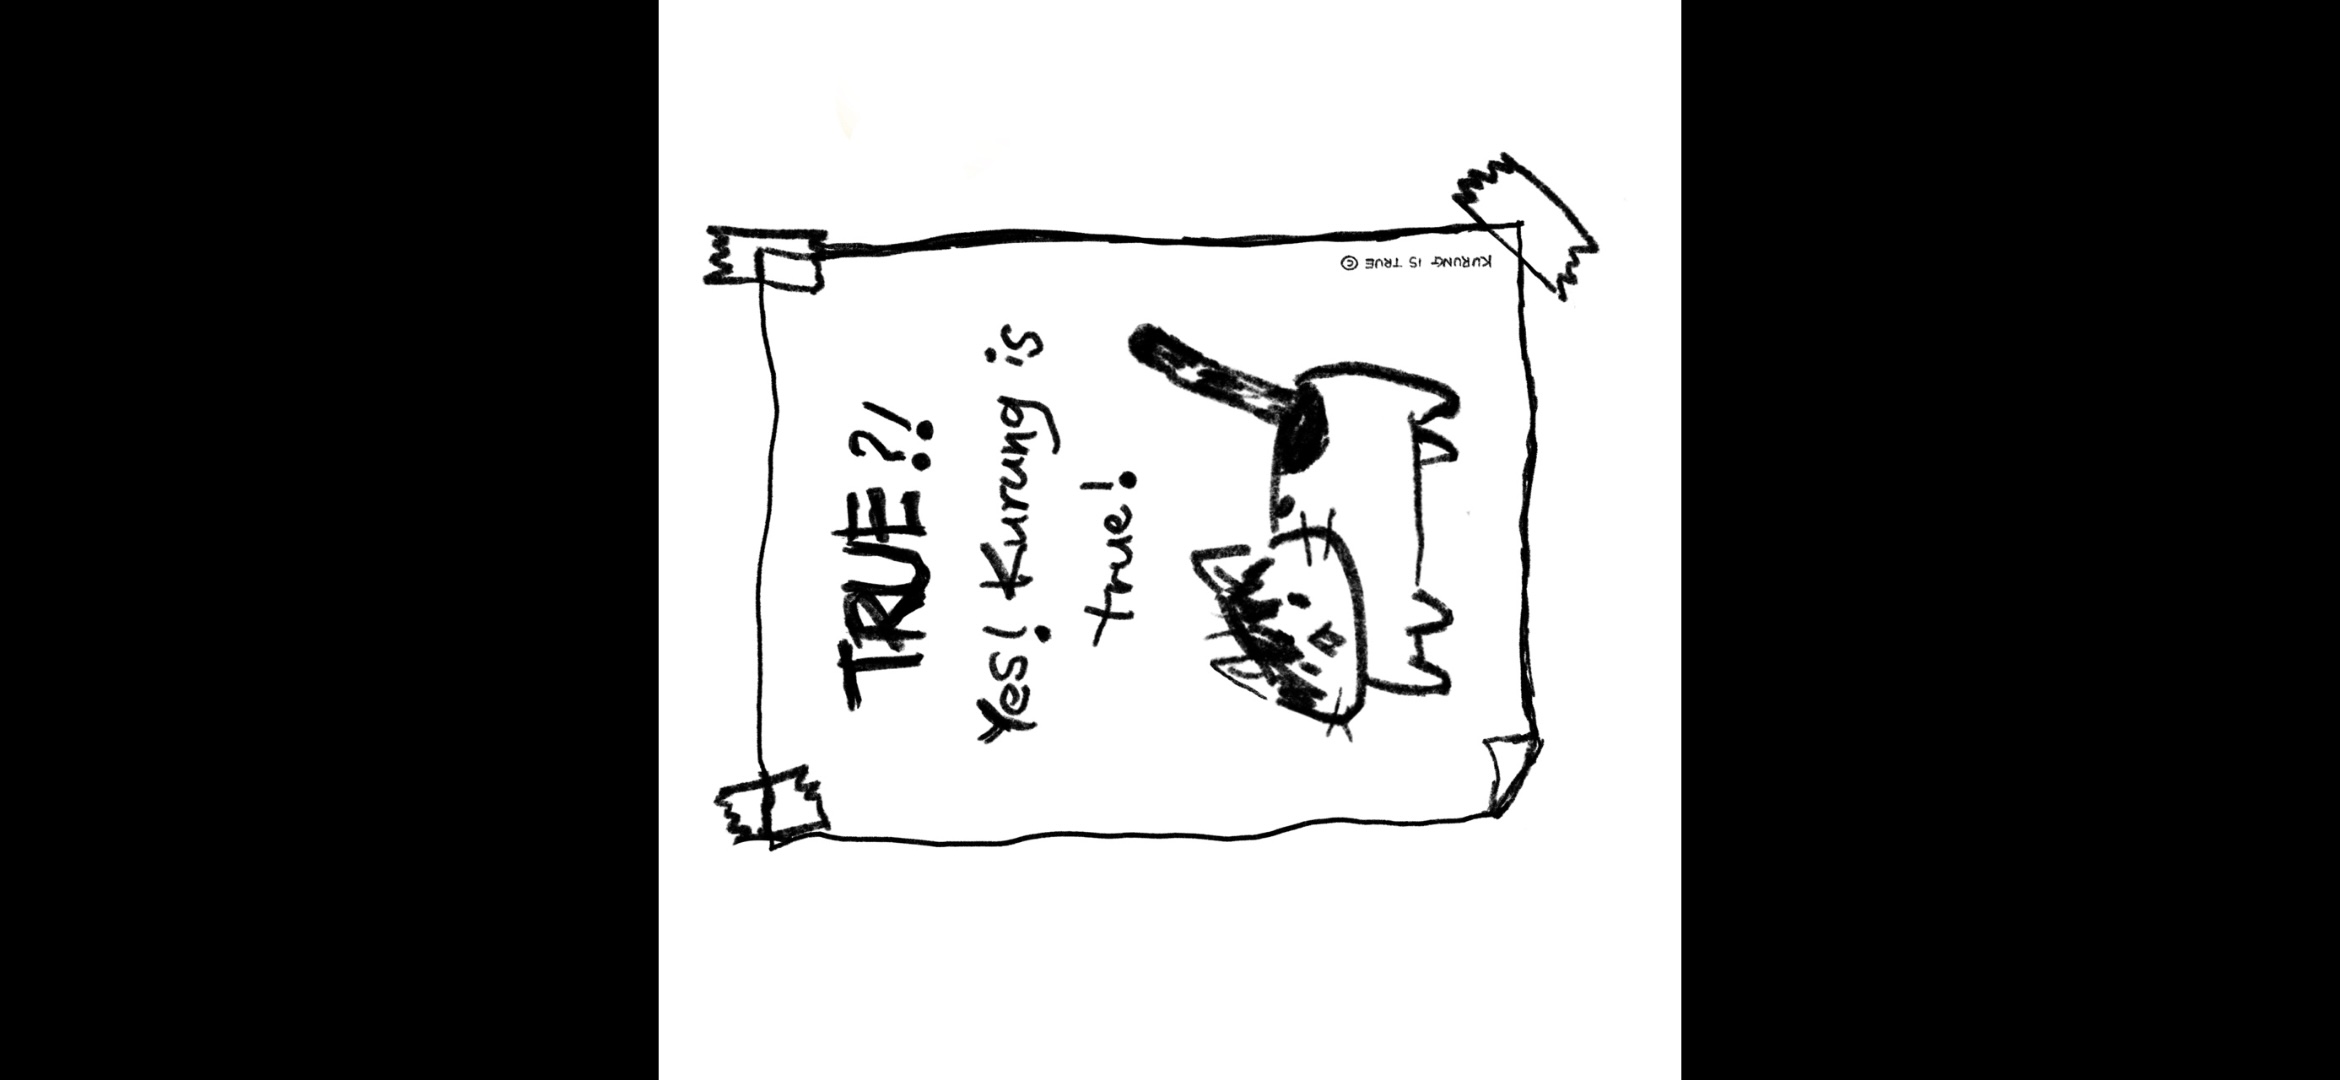 TRUE?!
Yes! Kurung is
true!
KURUNG IS TRUE ©